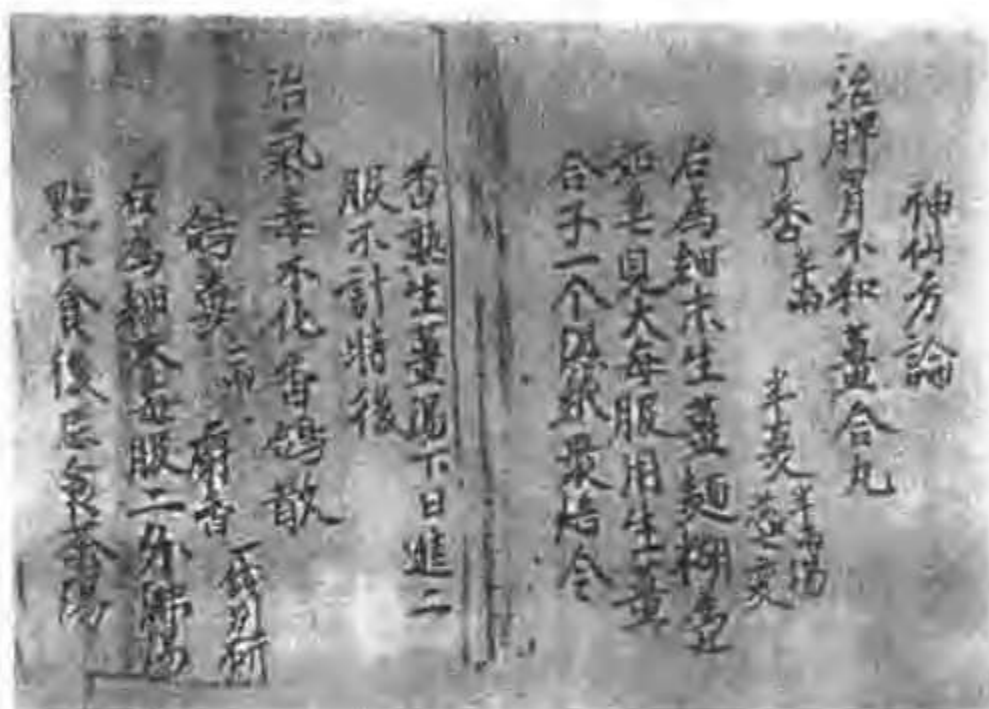 神仙方論
治脾胃不和薑合丸
丁香半兩 半夏半兩湯 薑炙
右為細末生薑麺糊為丸
如皂見大每服用生薑
合子一个濕紙裹焙令
香熟生薑湯下日進二
服不計時後
治氣毒不化香鴿散
鴿糞二兩 麝香一錢別研
右為細末每服二分沸湯
點下食後忌食